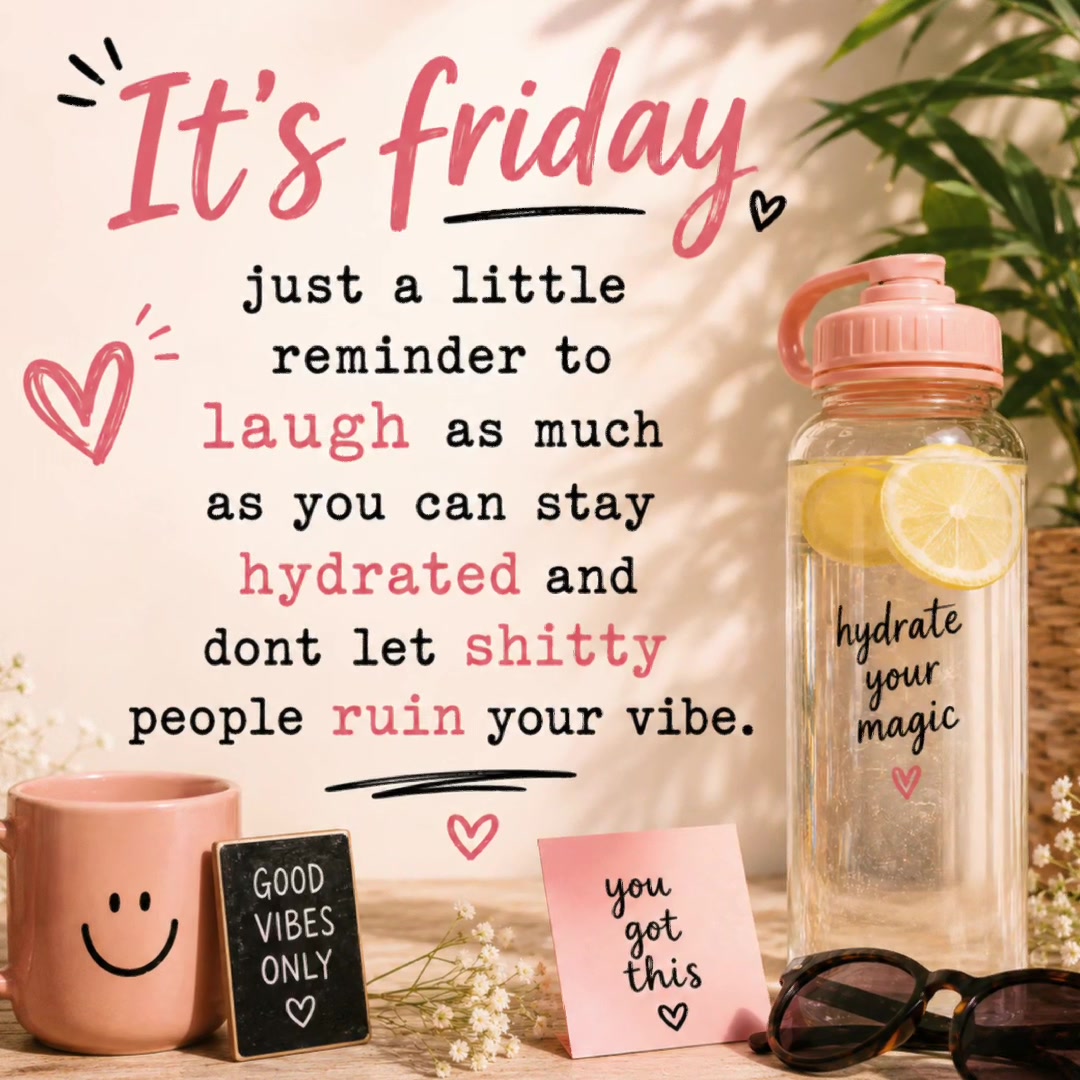 It's friday
just a little
reminder to
laugh as much
as you can stay
hydrated and
dont let shitty
people ruin your vibe.
hydrate
your
magic
GOOD
VIBES
ONLY
you
got
this